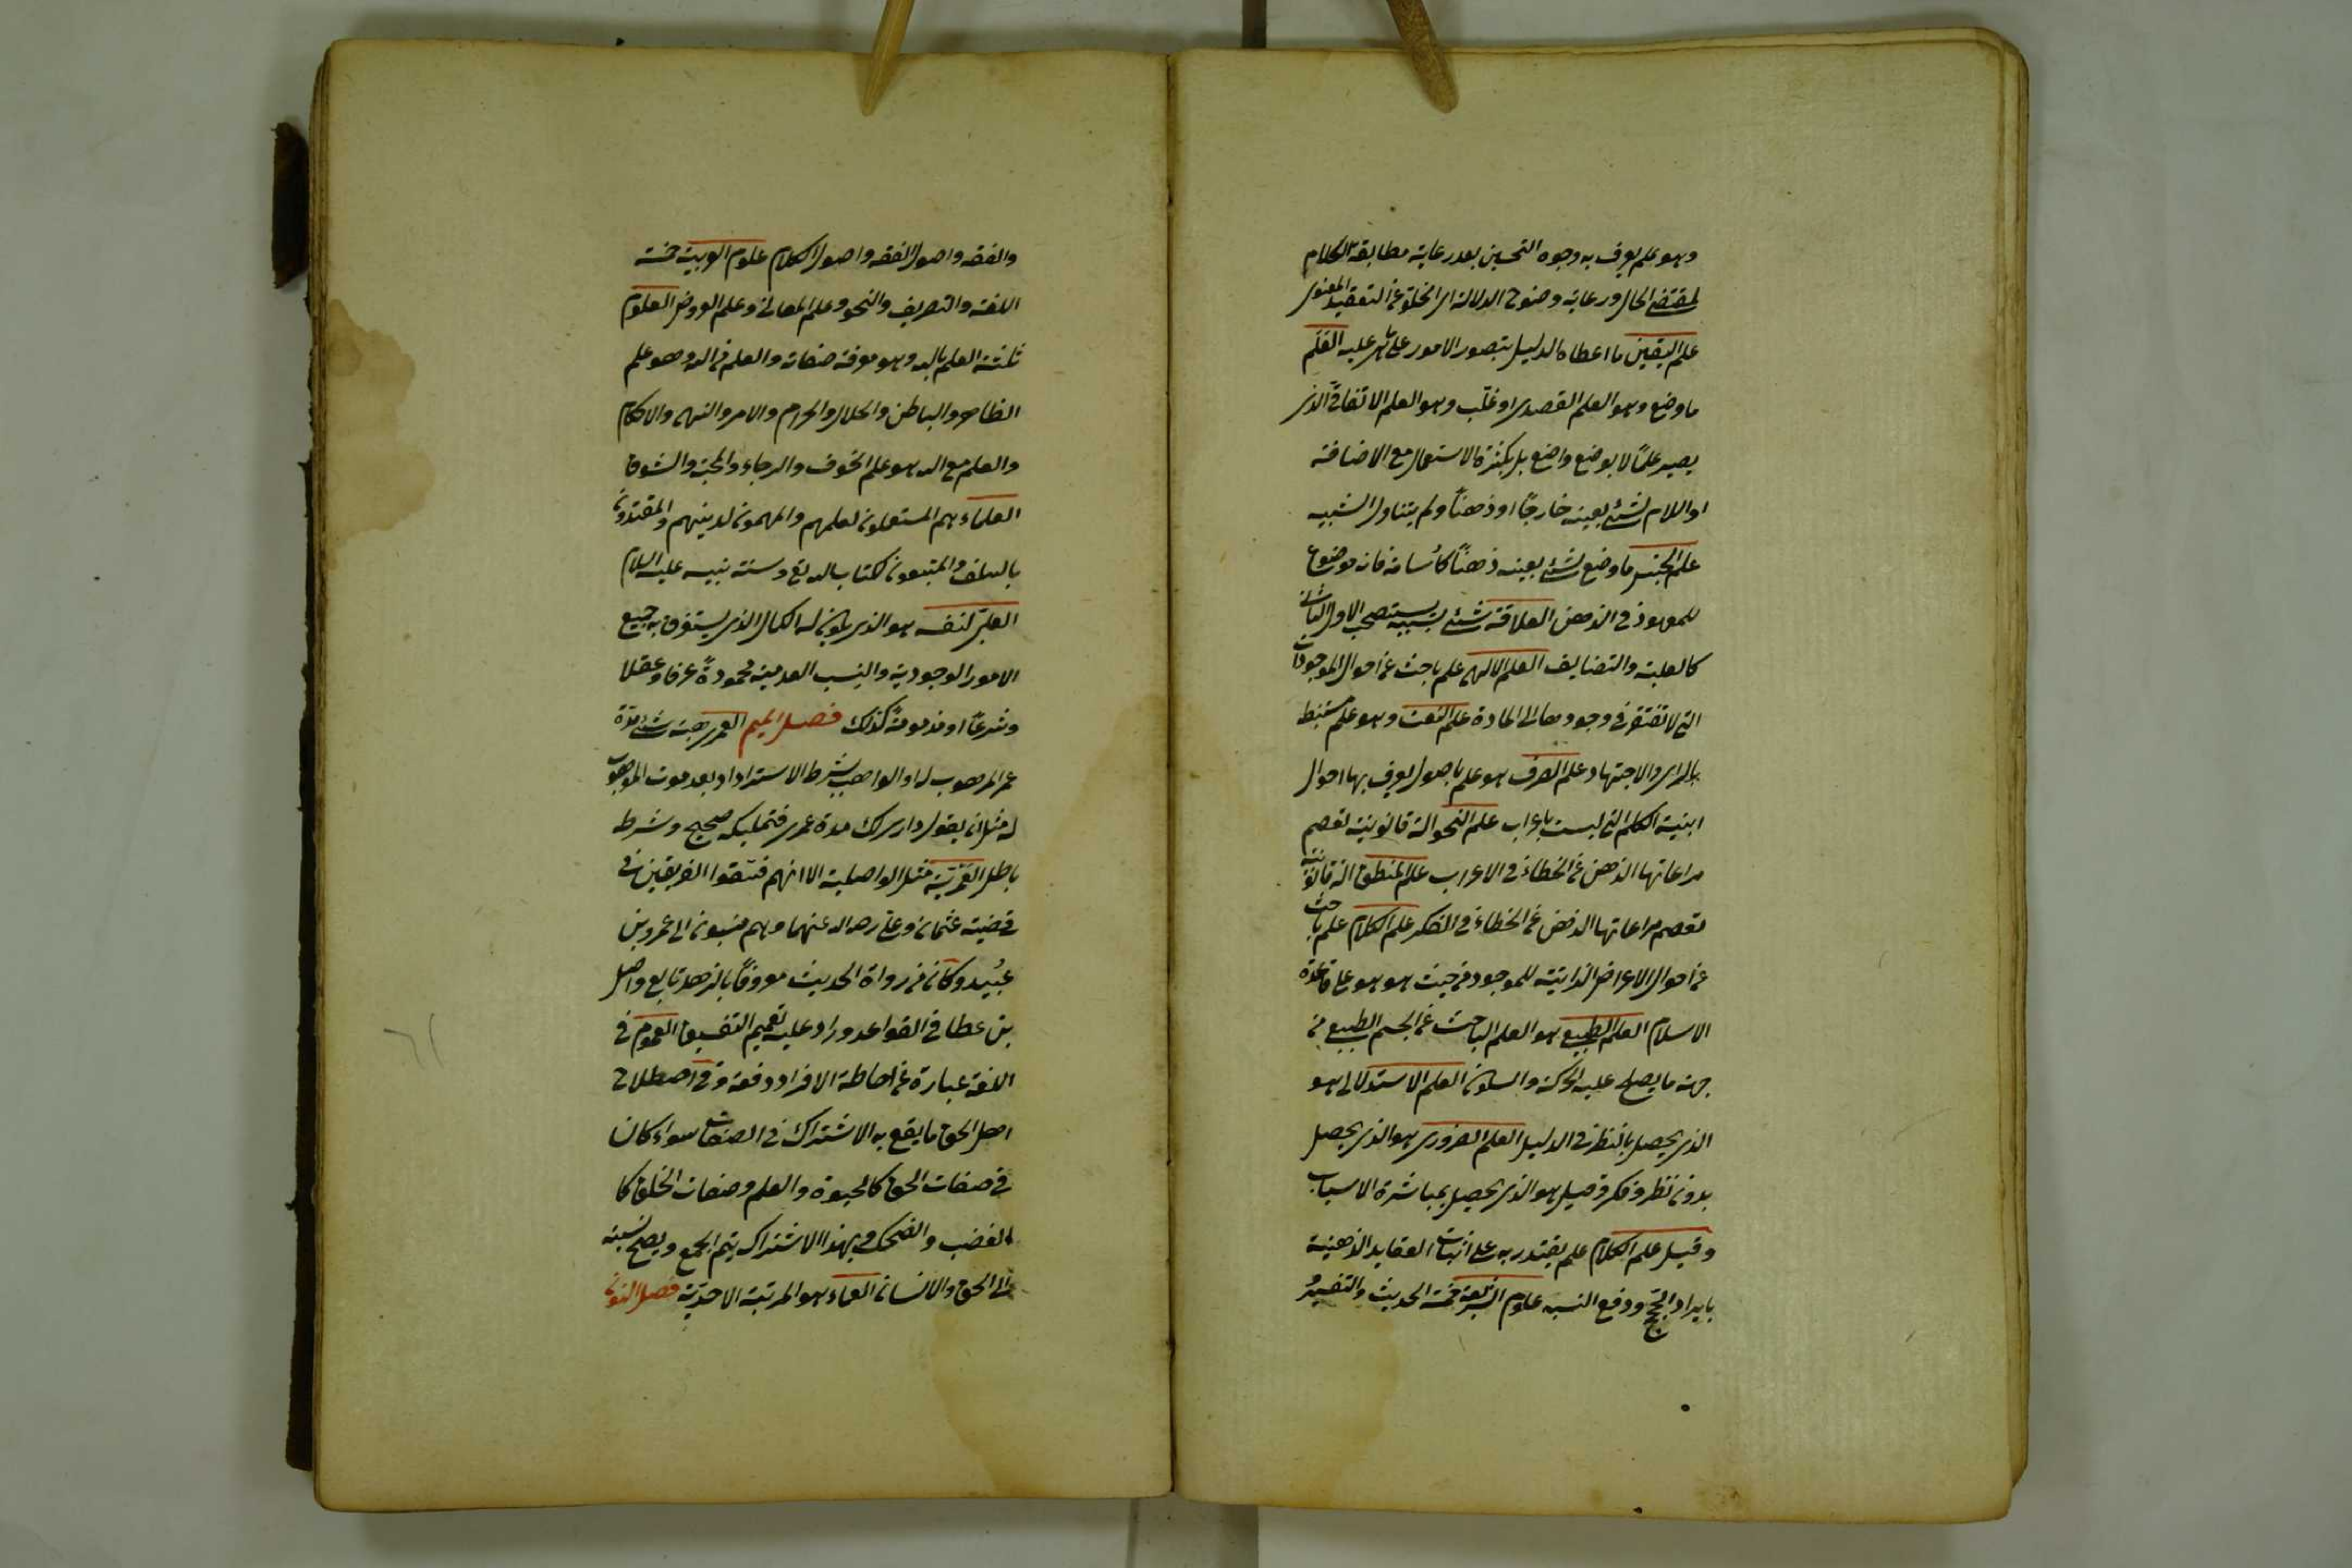 وهو علم يعرف به وجوه التحسين بعد رعاية مطابقة الكلام
لمقتضى الحال ورعاية وضوح الدلالة اى الخلو عن التعقيد المعنوى
علم اليقين ما اعطاه الدليل بتصور الامور على ما هى عليه العلم
ما وضع وهو العلم القصدى او غلب وهو العلم الاتفاقى الذى
يصير علمًا لا بوضع واضع بل بكثرة الاستعمال مع الاضافة
او اللام لشئ بعينه خارجًا او ذهنًا ولم يتناول الشبيه
علم الجنس ما وضع لشئ بعينه ذهنًا كأسامة فانه موضوع
للمعهود فى الذهن العلاقة شئ بسببه يستصحب الاول الثانى
كالعلية والتضايف العلم الالهى علم باحث عن احوال الموجودات
التى لا تفتقر فى وجودها الى المادة علم الفقه وهو علم مستنبط
بالراى والاجتهاد علم الصرف هو علم باصول يعرف بها احوال
ابنية الكلم التى ليست باعراب علم النحو الة قانونية تعصم
مراعاتها الذهن عن الخطاء فى الاعراب علم المنطق الة قانونية
تعصم مراعاتها الذهن عن الخطاء فى الفكر علم الكلام علم باحث
عن احوال الاعراض الذاتية للموجود من حيث هو هو على قاعدة
الاسلام العلم الطبيعى هو العلم الباحث عن الجسم الطبيعى من
جهة ما يصلح عليه الحركة والسكون العلم الاستدلالى هو
الذى يحصل بالنظر فى الدليل العلم الضرورى هو الذى يحصل
بدون نظر وفكر وقيل هو الذى يحصل بمباشرة الاسباب
وقيل علم الكلام علم يقتدر به على اثبات العقايد الذهنية
بايراد الحجج ودفع الشبه علوم الشريعة خمسة الحديث والتفسير
والفقه واصول الفقه واصول الكلام علوم العربية خمسة
اللغة والتصريف والنحو وعلم المعانى وعلم العروض العلوم
ثلثة العلم بالله وهو معرفة صفاته والعلم من الله وهو علم
الظاهر والباطن والحلال والحرام والامر والنهى والاحكام
والعلم مع الله هو علم الخوف والرجاء والمحبة والشوق
العلماء هم المستعملون لعلمهم والمهمون لدينهم والمقتدون
بالسلف والمتبعون لكتاب الله تع وسنة نبيه عليه السلام
العلى لنفسه هو الذى يكون له الكمال الذى يستغرق به جميع
الامور الوجودية والنسب العدمية محمودةً عرفا وعقلا
وشرعًا او مذمومةً كذلك فصل الميم العمرى هبة شئ مدة
عمر الموهوب له او الواهب بشرط الاسترداد بعد موت الموهوب
له مثل ان يقول دارى لك مدة عمرى فتمليكه صحيح وشرطه
باطل العمرية مثل الواصلية الا انهم فسقوا الفريقين فى
قضية عثمان وعلى رضى الله عنهما وهم منسوبون الى عمرو بن
عبيد وكان من رواة الحديث معروفًا بالزهد تابع واصل
بن عطا فى القواعد وزاد عليه تعميم التفسيق العموم فى
اللغة عبارة عن احاطة الافراد دفعة وفى اصطلاح
اهل الحق ما يقع به الاشتراك فى الصفات سواء كان
فى صفات الحق كالحيوة والعلم وصفات الخلق كا
لغضب والضحك وبهذا الاشتراك يتم الجمع ويصح نسبته
الى الحق والانسان العماء هو المرتبة الاحدية فصل النون